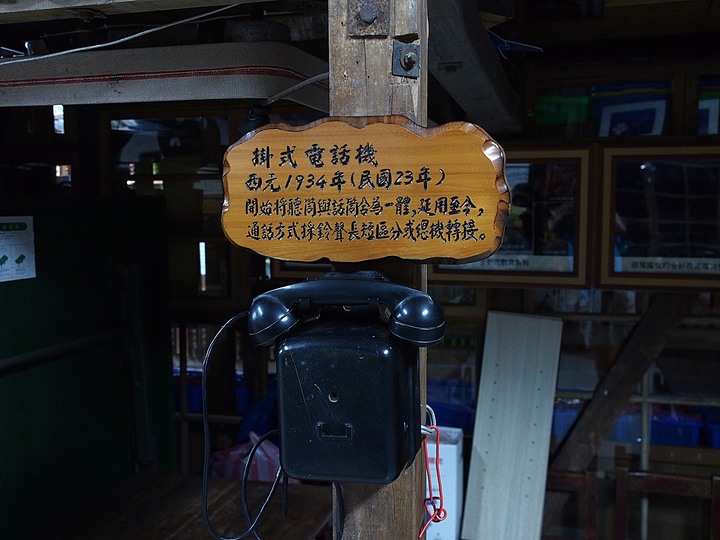 掛式電話機
西元1934年(民國23年)
開始將聽筒與話筒合為一體,延用至今,
通話方式採鈴聲長短區分或總機轉接。